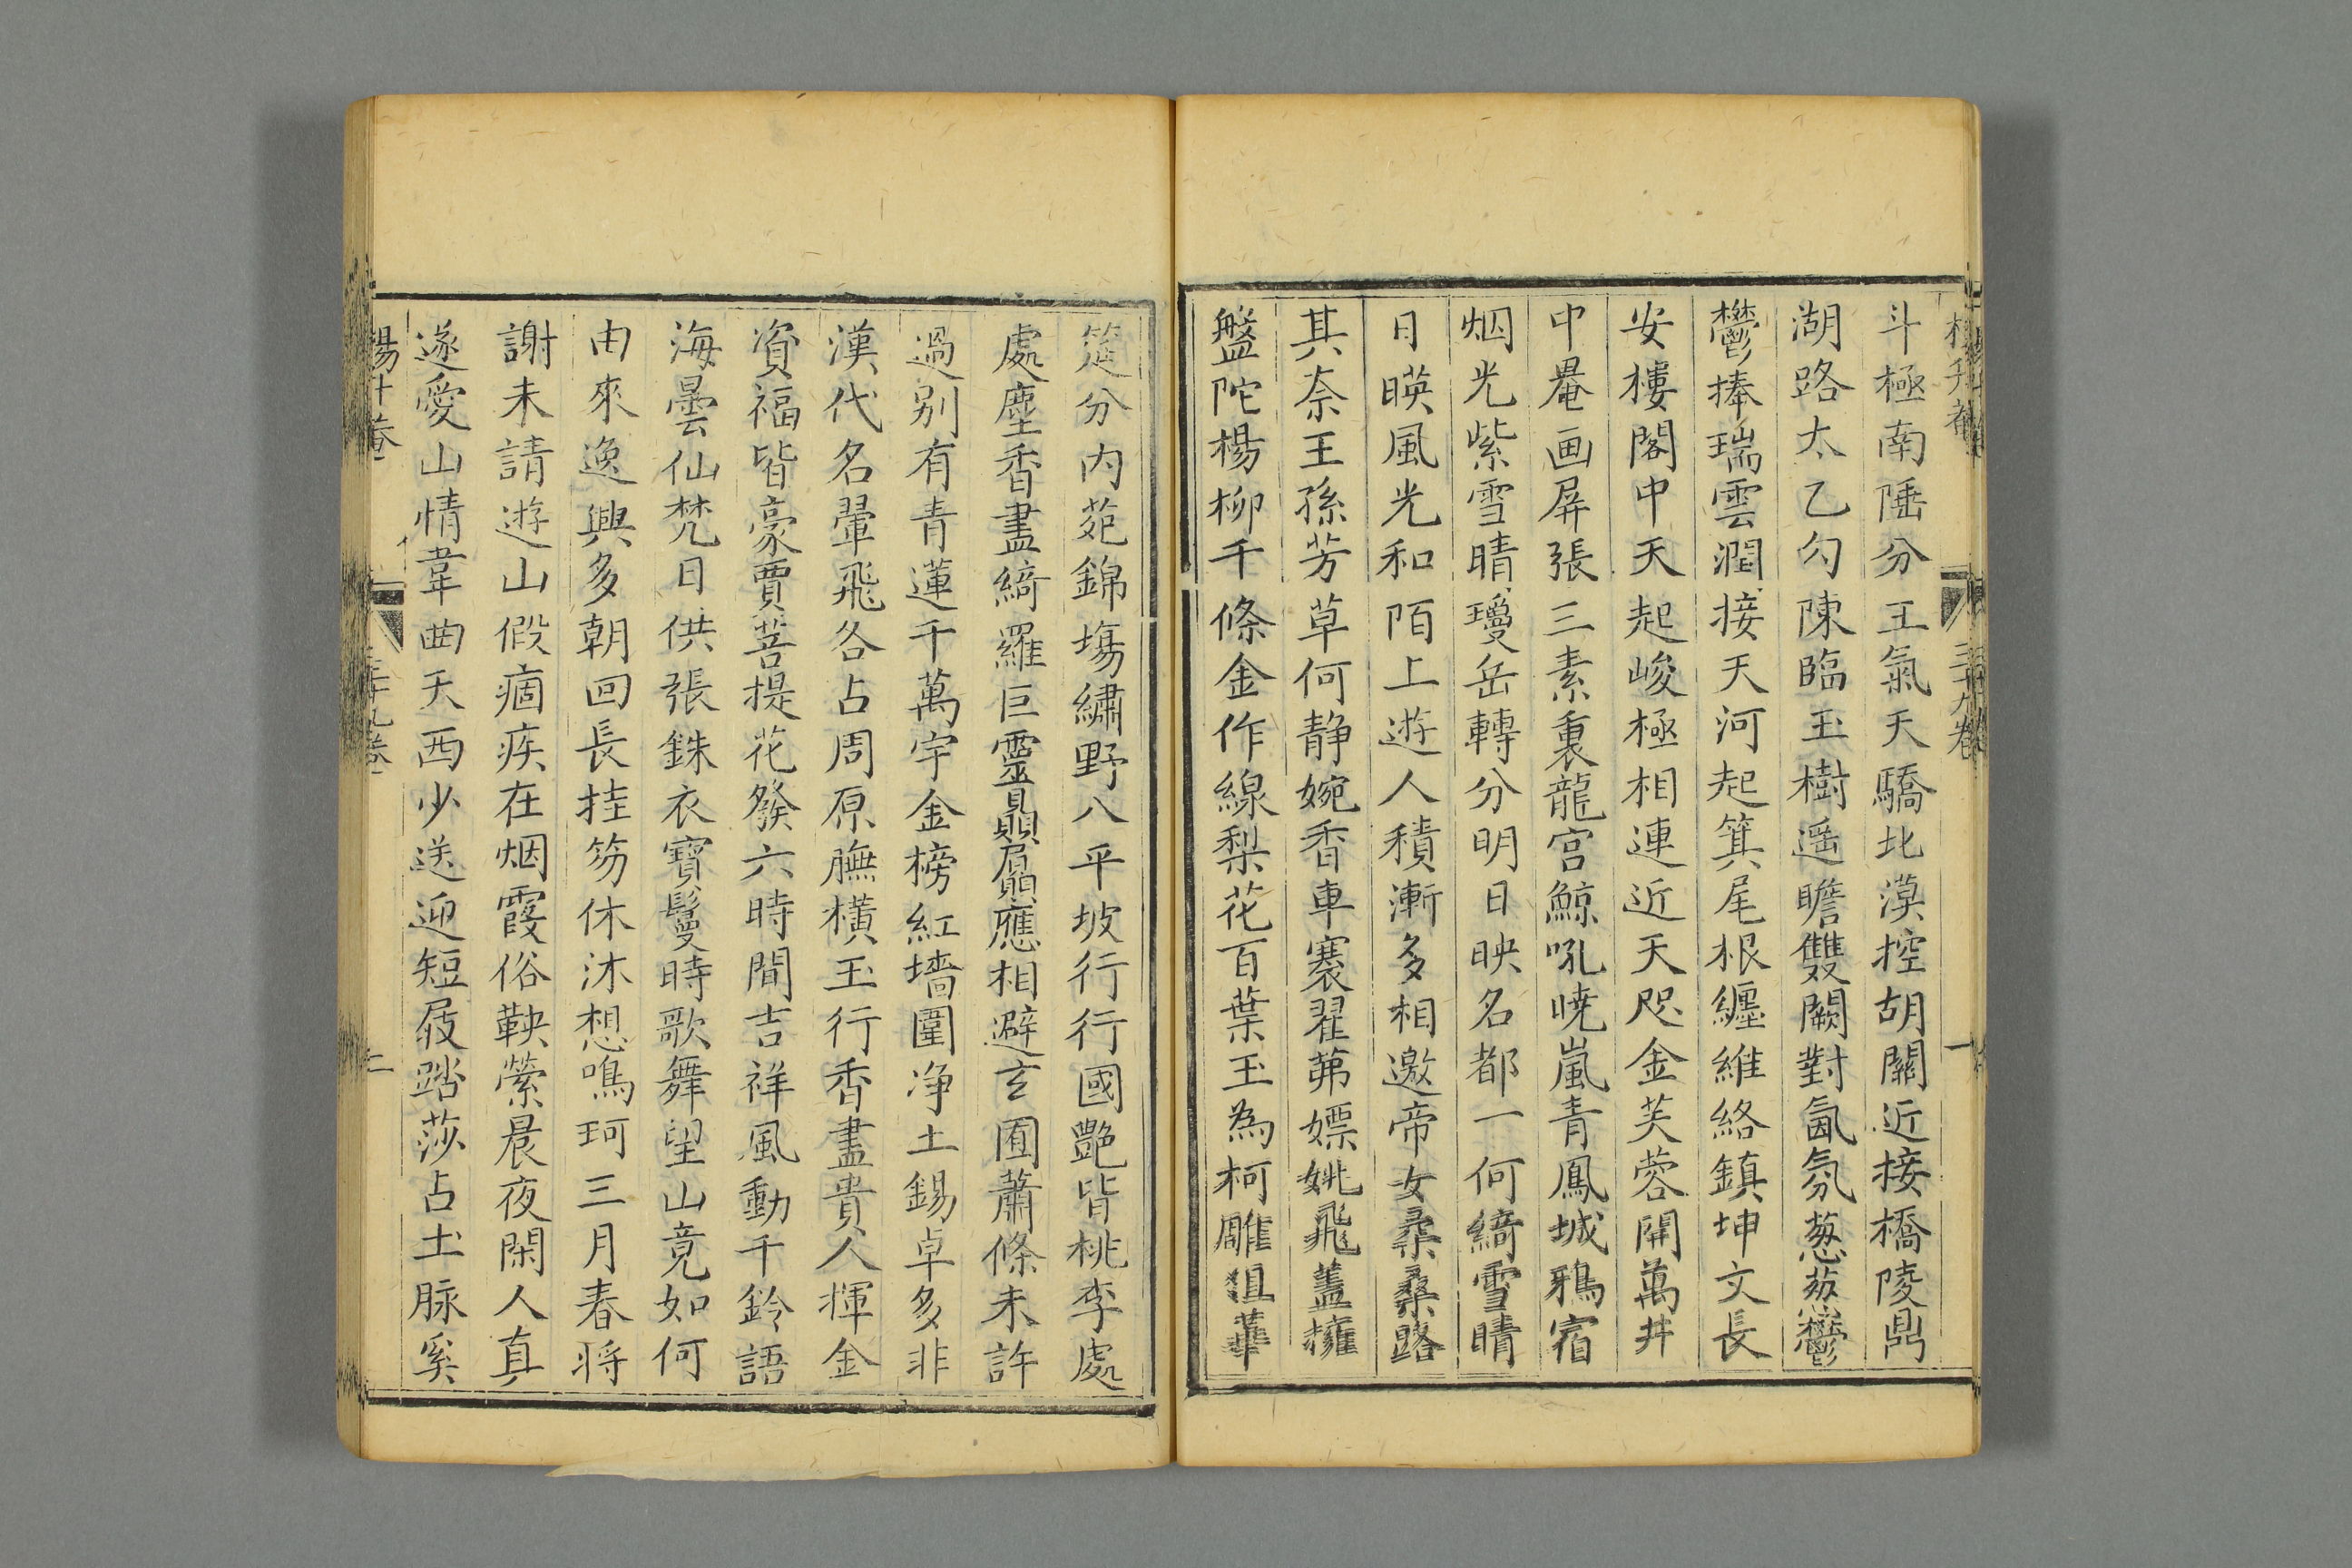 楊升菴 三十九卷 一
斗極南陲分王氣天驕北漠控胡關近接橋陵鼎
湖路太乙勾陳臨玉樹遥瞻雙闕對氤氛葱葱鬱
鬱捧瑞雲潤接天河起箕尾根纏維絡鎮坤文長
安樓閣中天起峻極相連近天咫金芙蓉開萬井
中罨画屏張三素裏龍宫鯨吼曉嵐青鳳城鴉宿
烟光紫雪晴瓊岳轉分明日映名都一何綺雪晴
日暎風光和陌上遊人積漸多相邀帝女桑桑路
其奈王孫芳草何静婉香車褰翟茀嫖姚飛蓋擁
盤陀楊柳千條金作線梨花百葉玉為柯雕俎華
筵分内苑錦塲繡野八平坡行行國艷皆桃李處
處塵香盡綺羅巨靈贔屭應相避玄囿蕭條未許
過别有青蓮千萬宇金榜紅墻圍净土錫卓多非
漢代名翬飛各占周原膴橫玉行香盡貴人揮金
資福皆豪賈菩提花發六時間吉祥風動千鈴語
海曇仙梵日供張銖衣寶鬘時歌舞望山竟如何
由來逸興多朝回長挂笏休沐想鳴珂三月春将
謝未請遊山假痼疾在烟霞俗鞅縈晨夜閑人真
遂愛山情韋曲天西少送迎短屐踏莎占土脉奚
楊升菴 三十九卷 二